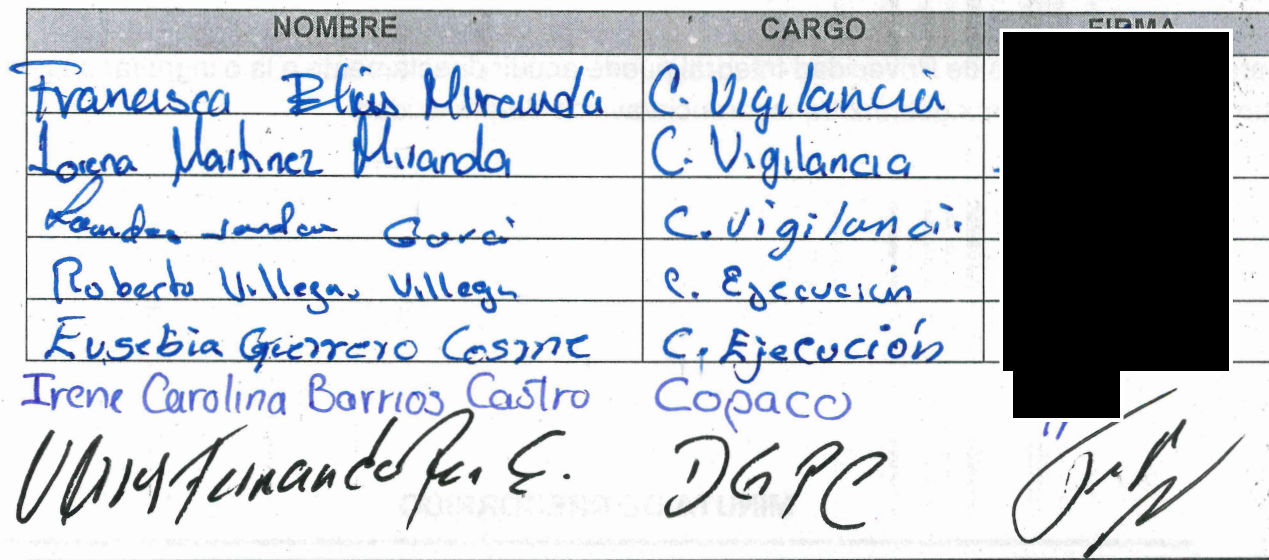 NOMBRE CARGO FIRMA
Francisca Elias Miranda C. Vigilancia
Lorena Martinez Miranda C. Vigilancia
C. Vigilanci.
Roberto Villegas Villega C. Ejecución
Eusebia Guerrero Cosme C. Ejecución
Irene Carolina Barrios Castro Copaco
Fernando DGPC